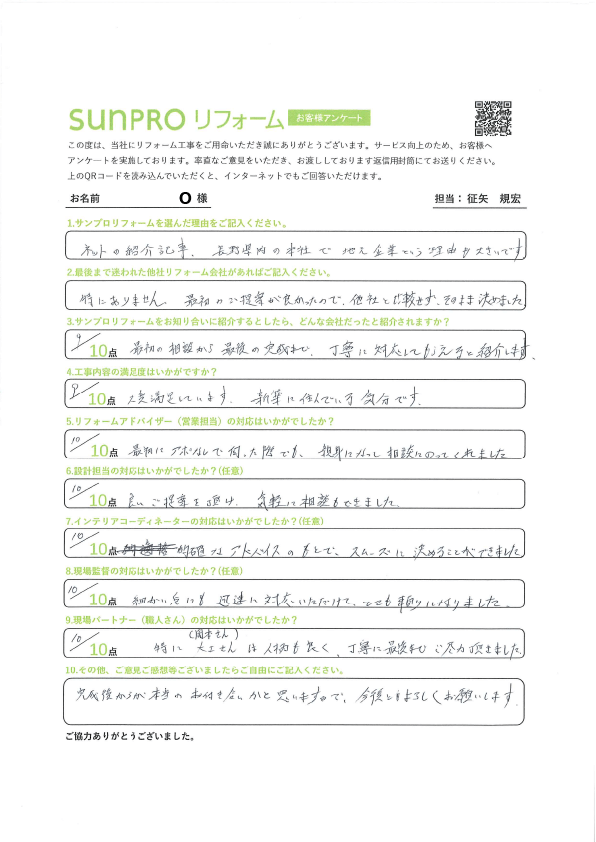 SUNPRO リフォーム お客様アンケート
この度は、当社にリフォーム工事をご用命いただき誠にありがとうございます。サービス向上のため、お客様へ
アンケートを実施しております。率直なご意見をいただき、お渡ししております返信用封筒にてお送りください。
上のQRコードを読み込んでいただくと、インターネットでもご回答いただけます。
お名前 O 様 担当：征矢 規宏
1.サンプロリフォームを選んだ理由をご記入ください。
ネットの紹介記事、長野県内の本社で地元企業という理由も大きいです
2.最後まで迷われた他社リフォーム会社があればご記入ください。
特にありません。最初のご提案が良かったので、他社と比較せず、そのまま決めました
3.サンプロリフォームをお知り合いに紹介するとしたら、どんな会社だったと紹介されますか？
9/10点 最初の相談から最後の完成まで、丁寧に対応してもらえると紹介します。
4.工事内容の満足度はいかがですか？
9/10点 大変満足しています。新築に住んでいる気分です。
5.リフォームアドバイザー（営業担当）の対応はいかがでしたか？
10/10点 最初にアポなしで伺った際でも、親身になって相談にのってくれました
6.設計担当の対応はいかがでしたか？(任意)
10/10点 良いご提案を頂け、気軽に相談もできました。
7.インテリアコーディネーターの対応はいかがでしたか？(任意)
10/10点 的確なアドバイスのもとで、スムーズに決めることができました
8.現場監督の対応はいかがでしたか？(任意)
10/10点 細かい点にも迅速に対応いただけて、とても頼りになりました。
9.現場パートナー（職人さん）の対応はいかがでしたか？
10/10点 特に大工さん(岡本さん)は人柄も良く、丁寧に最後までご尽力頂きました。
10.その他、ご意見ご感想等ございましたらご自由にご記入ください。
完成後からが本当のお付き合いかと思いますので、今後ともよろしくお願いします。
ご協力ありがとうございました。